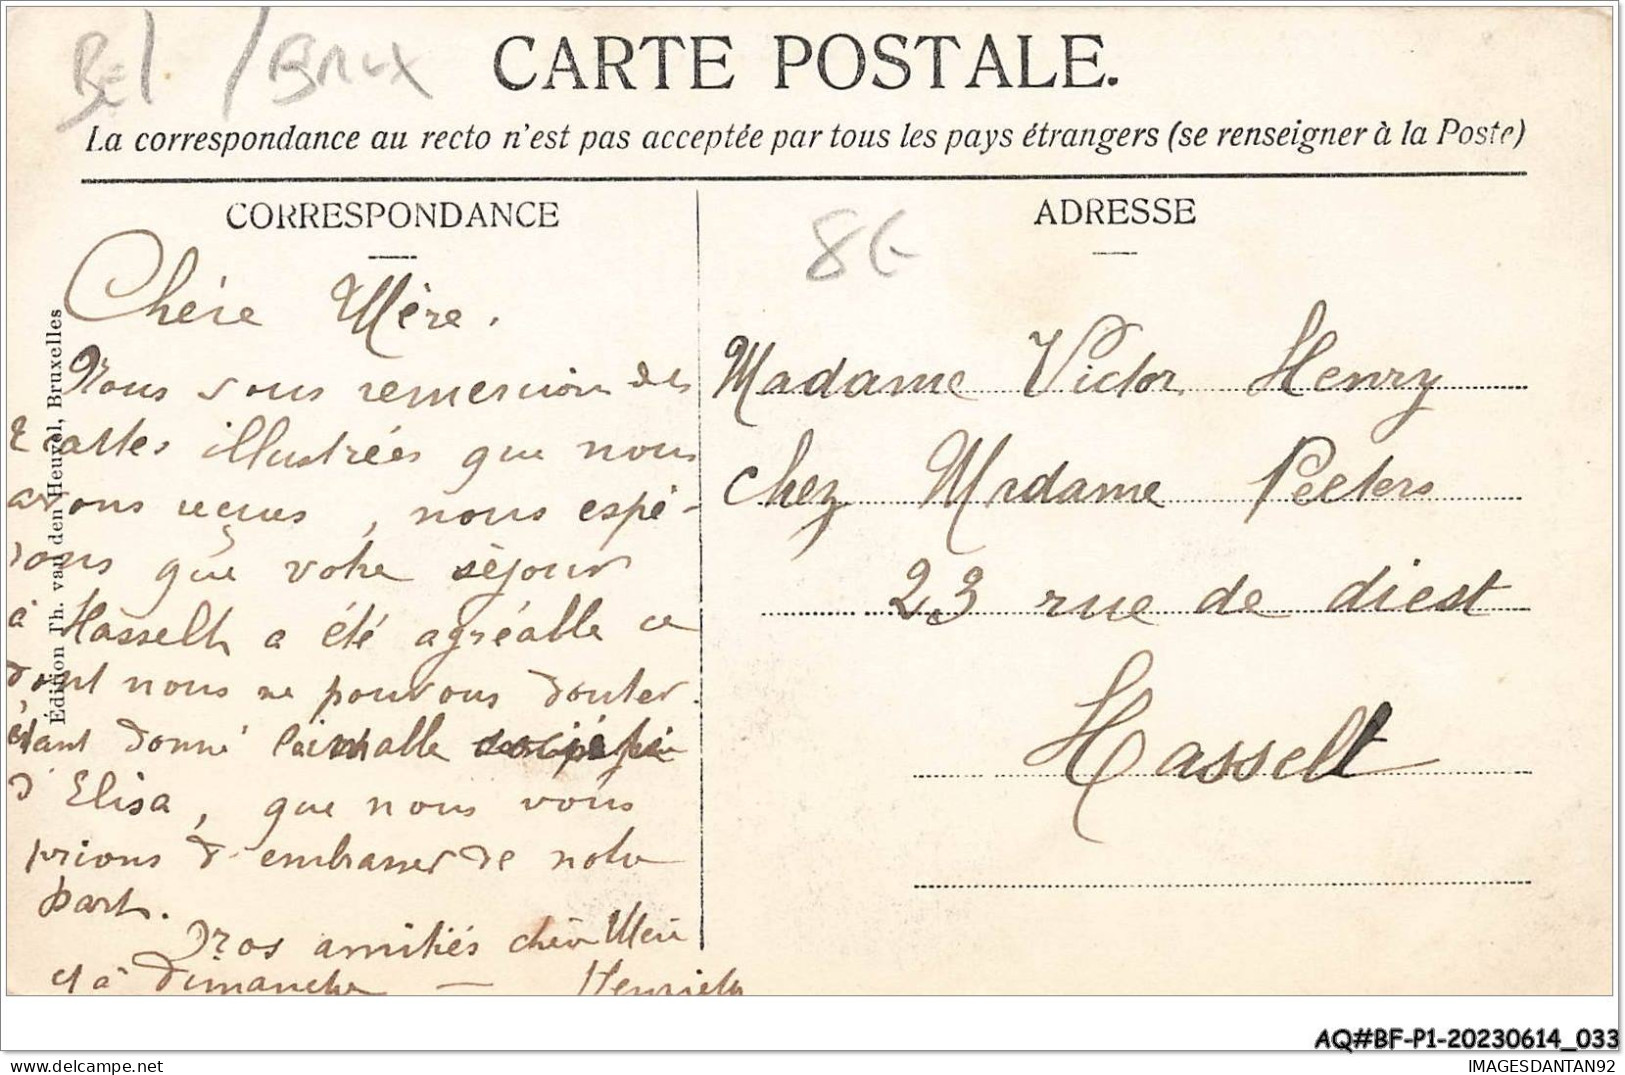 Bel / Brux
CARTE POSTALE.
La correspondance au recto n'est pas acceptée par tous les pays étrangers (se renseigner à la Poste)
CORRESPONDANCE
ADRESSE
8€
Édition Th. van den Heuvel, Bruxelles
Chère Mère.
Nous vous remercions des
cartes illustrées que nous
avons reçues, nous espé-
rons que votre séjour
à Hasselt a été agréable ce
dont nous ne pouvons douter
étant donné l'aimable
d'Elisa, que nous vous
prions d'embrasser de notre
part.
Nos amitiés chère Mère
et à dimanche —
Madame Victor Henry
chez Madame Peeters
23 rue de diest
Hasselt
AQ#BF-P1-20230614_033
IMAGESDANTAN92